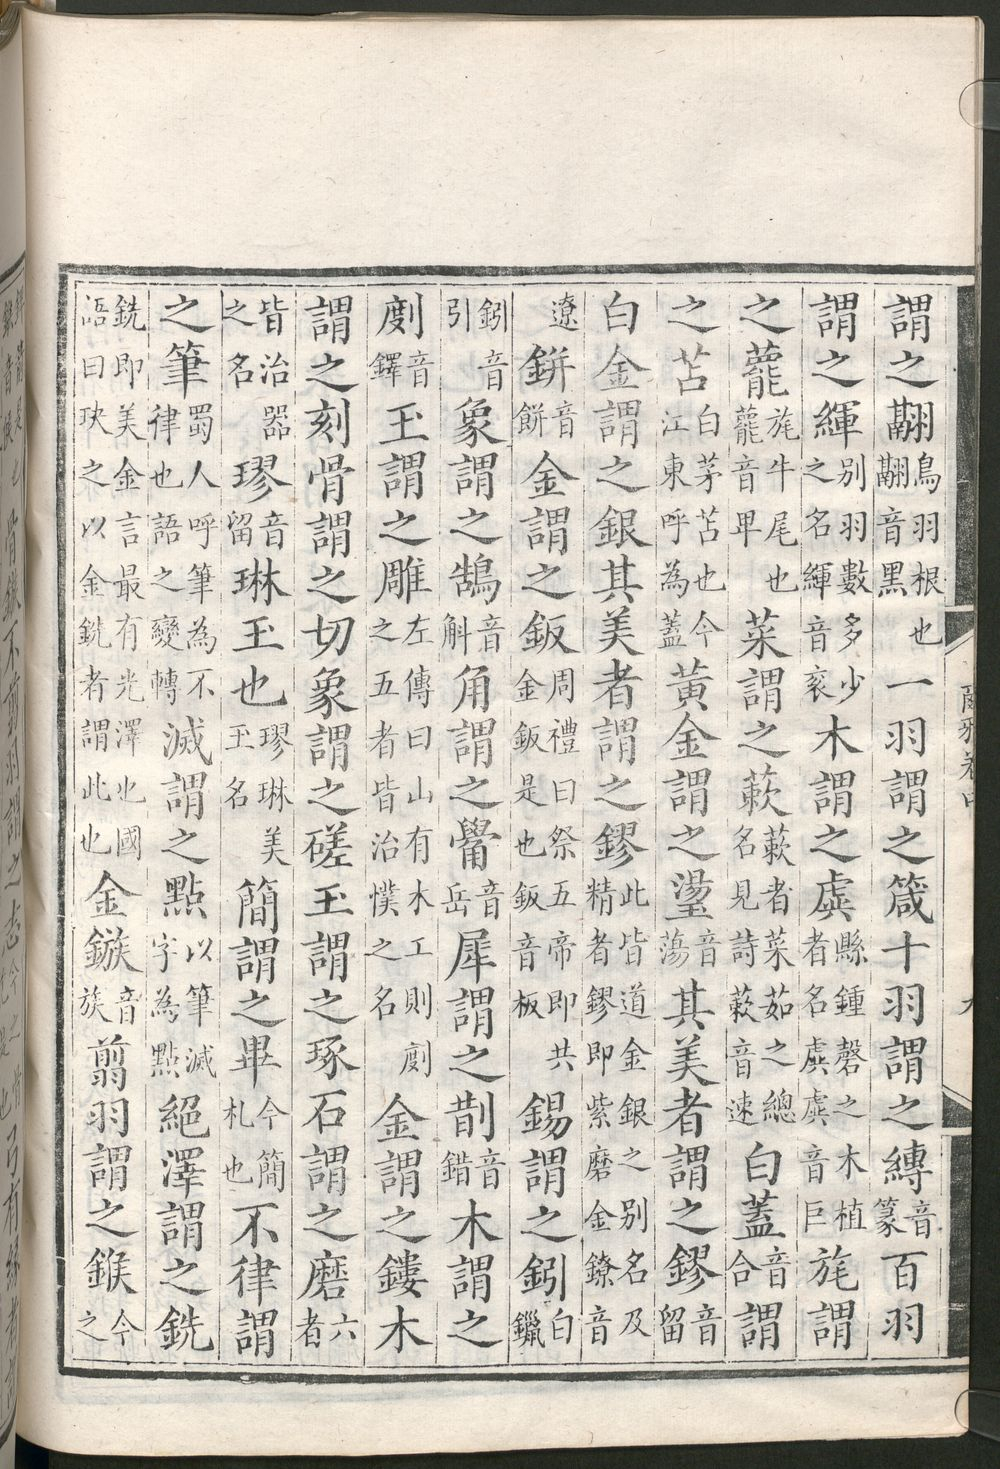 謂之翮鳥羽根也翮音黑一羽謂之箴十羽謂之縳音篆百羽
謂之緷別羽數多少之名緷音衮木謂之虡縣鍾磬之木植者名虡虡音巨旄謂
之藣旄牛尾也藣音卑菜謂之蔌蔌者菜茹之總名見詩蔌音速白蓋音合謂
之苫白茅苫也今江東呼為蓋黃金謂之璗音蕩其美者謂之鏐音留
白金謂之銀其美者謂之鐐此皆道金銀之別名及精者鏐即紫磨金鐐音
遼鉼音餅金謂之鈑周禮曰祭五帝即共金鈑是也鈑音板錫謂之鈏白鑞
鈏音引象謂之鵠音斛角謂之觷音岳犀謂之剒音錯木謂之
剫音鐸玉謂之雕左傳曰山有木工則剫之五者皆治樸之名金謂之鏤木
謂之刻骨謂之切象謂之磋玉謂之琢石謂之磨六者
皆治器之名璆音留琳玉也璆琳美玉名簡謂之畢今簡札也不律謂
之筆蜀人呼筆為不律也語之變轉滅謂之點以筆滅字為點絕澤謂之銑
銑即美金言最有光澤也國語曰玦之以金銑者謂此也金鏃音族翦羽謂之鍭今之
爾雅卷中
九